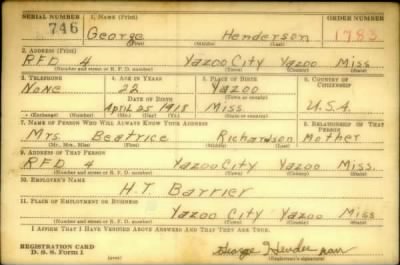 SERIAL NUMBER 1. NAME (Print) ORDER NUMBER
746 George Henderson 1783
(First) (Middle) (Last)
2. ADDRESS (Print)
RFD 4 Yazoo City Yazoo Miss
(Number and street or R. F. D. number) (Town) (County) (State)
3. TELEPHONE 4. AGE IN YEARS 5. PLACE OF BIRTH 6. COUNTRY OF CITIZENSHIP
None 22 Yazoo
DATE OF BIRTH (Town or county)
April 25 1918 Miss. U.S.A.
(Exchange) (Number) (Mo.) (Day) (Yr.) (State or country)
7. NAME OF PERSON WHO WILL ALWAYS KNOW YOUR ADDRESS 8. RELATIONSHIP OF THAT PERSON
Mrs. Beatrice Richardson Mother
(Mr., Mrs., Miss) (First) (Middle) (Last)
9. ADDRESS OF THAT PERSON
RFD 4 Yazoo City Yazoo Miss.
(Number and street or R. F. D. number) (Town) (County) (State)
10. EMPLOYER'S NAME
H.T. Barrier
11. PLACE OF EMPLOYMENT OR BUSINESS
Yazoo City Yazoo Miss
(Number and street or R. F. D. number) (Town) (County) (State)
I AFFIRM THAT I HAVE VERIFIED ABOVE ANSWERS AND THAT THEY ARE TRUE.
REGISTRATION CARD
D. S. S. Form 1 George Henderson
(over) (Registrant's signature)